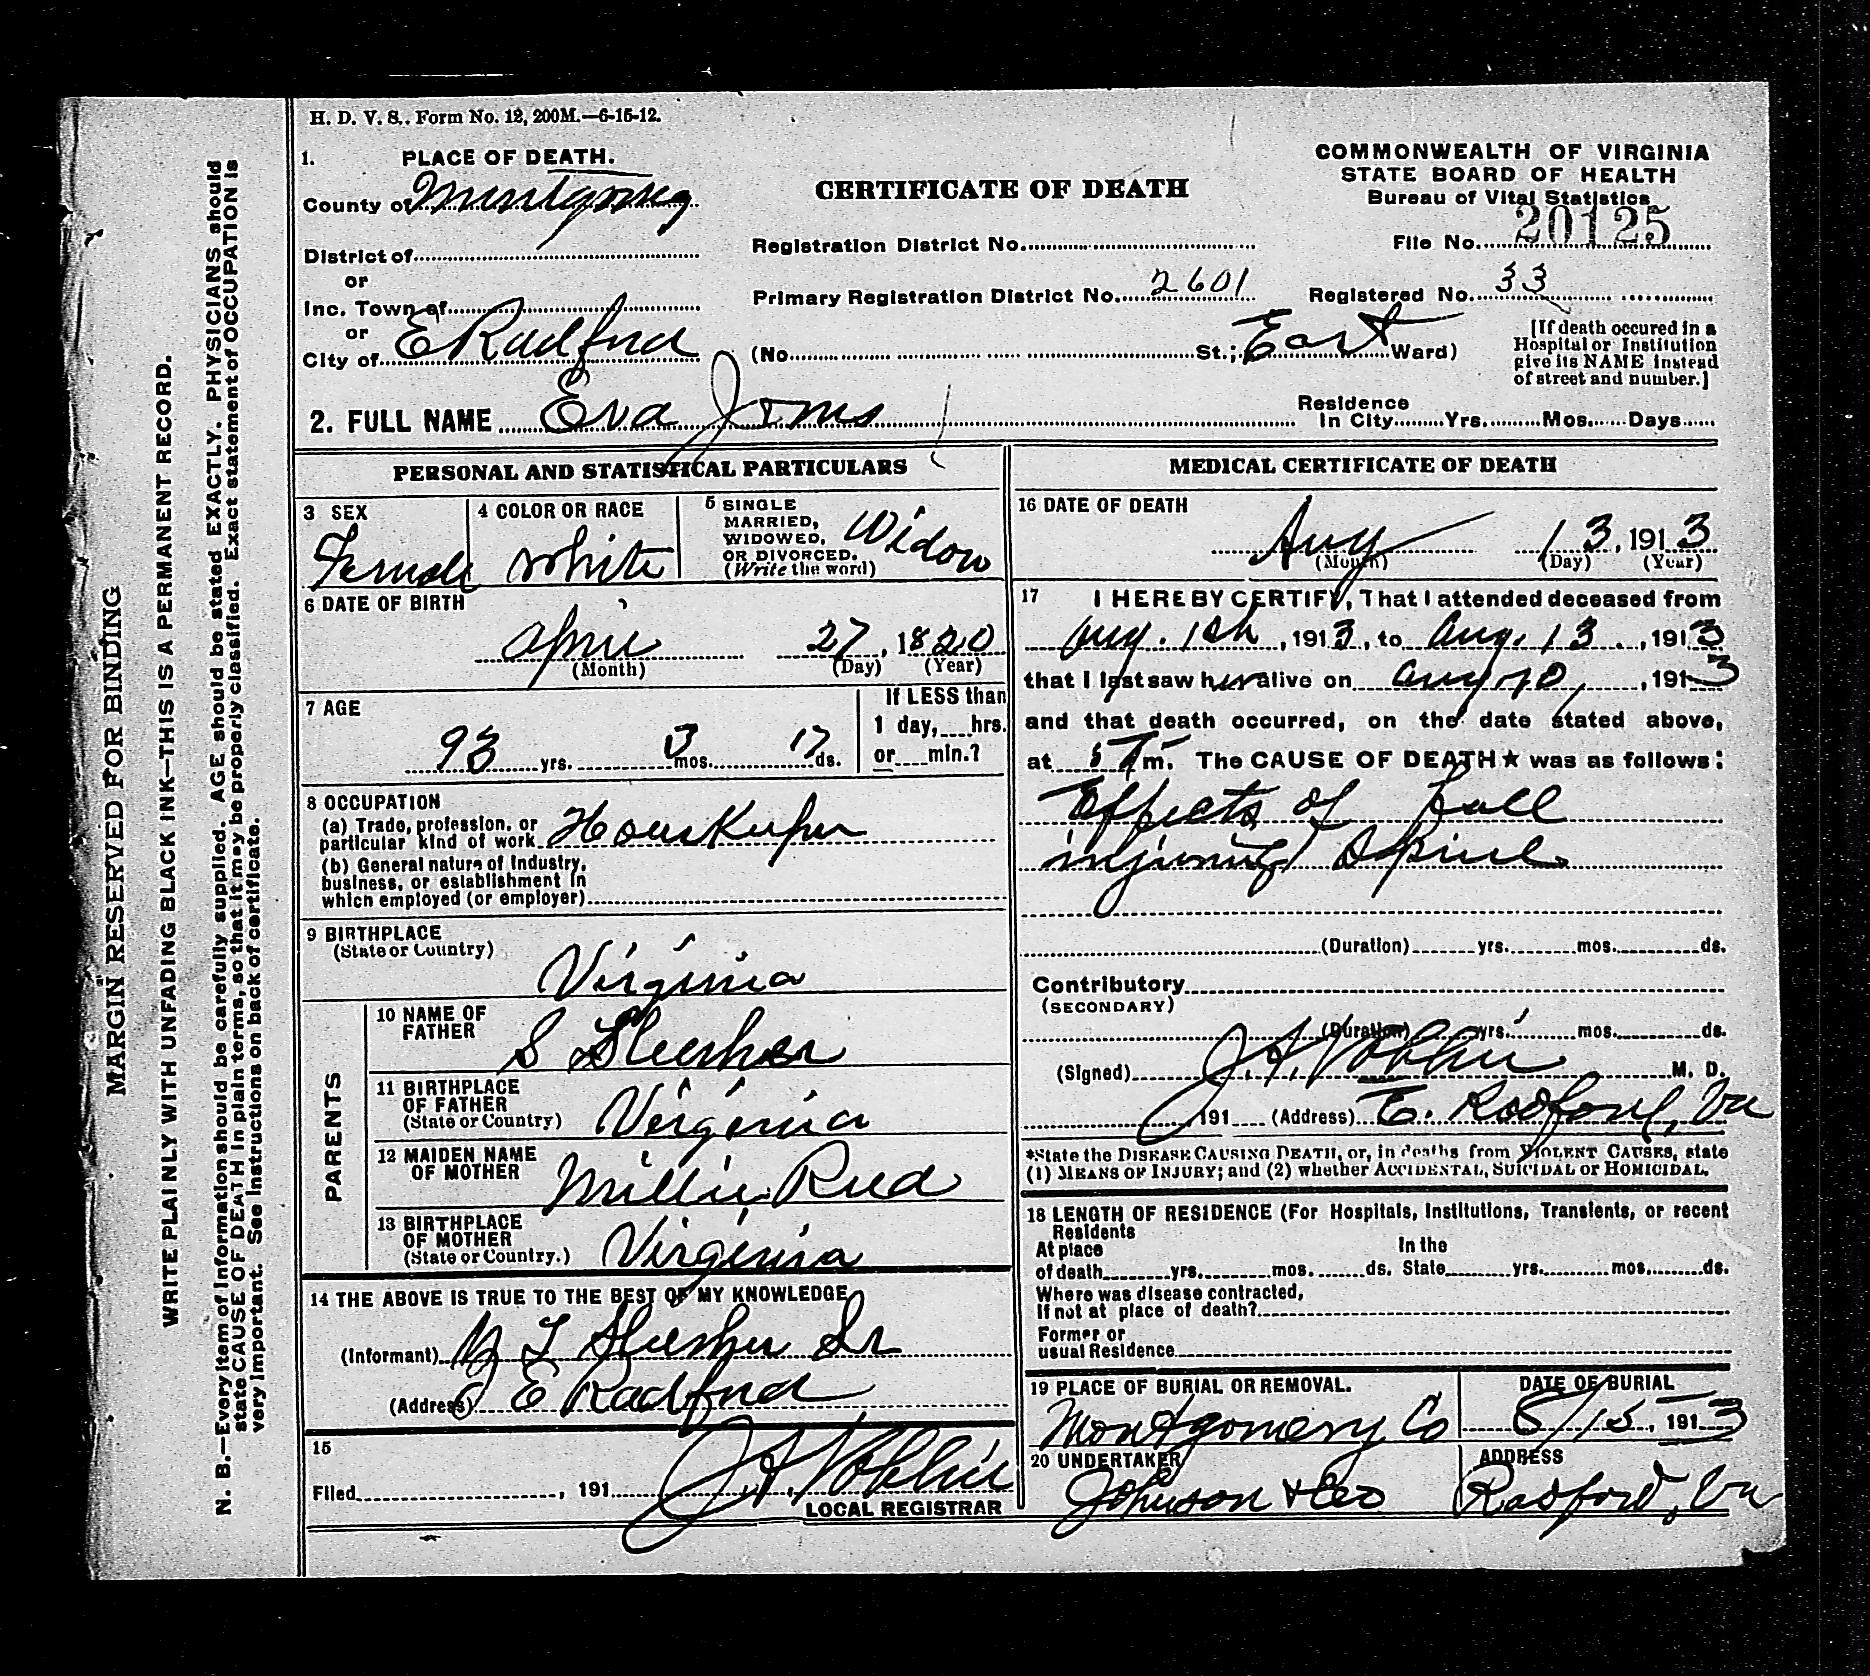 H. D. V. S.. Form No. 12, 200M.—6-15-12.
1. PLACE OF DEATH.
County of Montgomery
District of
or
Inc. Town of
or
City of E Radford
CERTIFICATE OF DEATH
Registration District No.
Primary Registration District No. 2601
(No. St.; East Ward)
COMMONWEALTH OF VIRGINIA
STATE BOARD OF HEALTH
Bureau of Vital Statistics
File No. 20125
Registered No. 33
[If death occured in a
Hospital or Institution
give its NAME instead
of street and number.]
2. FULL NAME Eva Jones
Residence
In City Yrs. Mos. Days
PERSONAL AND STATISTICAL PARTICULARS
3 SEX
Female
4 COLOR OR RACE
White
5 SINGLE
MARRIED,
WIDOWED,
OR DIVORCED.
(Write the word)
Widow
6 DATE OF BIRTH
April 27, 1820
(Month) (Day) (Year)
7 AGE
93 yrs. 3 mos. 17 ds.
If LESS than
1 day, hrs.
or min.?
8 OCCUPATION
(a) Trade, profession, or
particular kind of work Houskeeper
(b) General nature of industry,
business, or establishment in
which employed (or employer)
9 BIRTHPLACE
(State or Country)
Virginia
PARENTS
10 NAME OF
FATHER
S Slusher
11 BIRTHPLACE
OF FATHER
(State or Country)
Virginia
12 MAIDEN NAME
OF MOTHER
Millie Reed
13 BIRTHPLACE
OF MOTHER
(State or Country.)
Virginia
14 THE ABOVE IS TRUE TO THE BEST OF MY KNOWLEDGE
(Informant) Slusher Sr
(Address) E Radford
15
Filed , 191
LOCAL REGISTRAR
MEDICAL CERTIFICATE OF DEATH
16 DATE OF DEATH
Aug 13, 1913
(Month) (Day) (Year)
17 I HEREBY CERTIFY, That I attended deceased from
Aug. 1st, 1913, to Aug. 13, 1913
that I last saw her alive on Aug 10, 1913
and that death occurred, on the date stated above,
at m. The CAUSE OF DEATH★ was as follows:
Effects of Fall
injuring Spine
(Duration) yrs. mos. ds.
Contributory
(SECONDARY)
(Duration) yrs. mos. ds.
(Signed) M. D.
, 191 (Address) E. Radford, Va
*State the DISEASE CAUSING DEATH, or, in deaths from VIOLENT CAUSES, state
(1) MEANS OF INJURY; and (2) whether ACCIDENTAL, SUICIDAL or HOMICIDAL.
18 LENGTH OF RESIDENCE (For Hospitals, Institutions, Transients, or recent
Residents
At place In the
of death yrs. mos. ds. State yrs. mos. ds.
Where was disease contracted,
If not at place of death?
Former or
usual Residence
19 PLACE OF BURIAL OR REMOVAL.
Montgomery Co
DATE OF BURIAL
8/15, 1913
20 UNDERTAKER
Johnson & Co
ADDRESS
Radford, Va
MARGIN RESERVED FOR BINDING
WRITE PLAINLY WITH UNFADING BLACK INK—THIS IS A PERMANENT RECORD.
N. B.—Every item of information should be carefully supplied. AGE should be stated EXACTLY. PHYSICIANS should
state CAUSE OF DEATH in plain terms, so that it may be properly classified. Exact statement of OCCUPATION is
very important. See instructions on back of certificate.